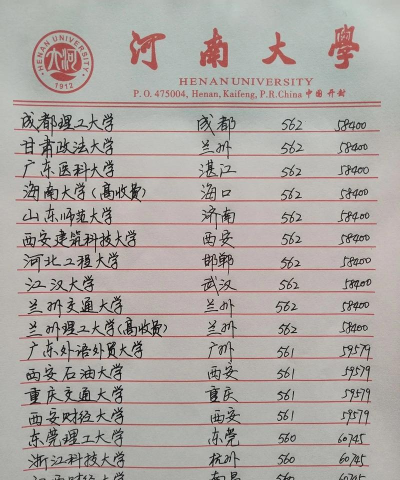 HENAN UNIVERSITY
1912
河南大學
HENAN UNIVERSITY
P. O. 475004, Henan, Kaifeng, P.R.China 中国 开封
成都理工大学 成都 562 58400
甘肃政法大学 兰州 562 58400
广东医科大学 湛江 562 58400
海南大学(高收费) 海口 562 58400
山东师范大学 济南 562 58400
西安建筑科技大学 西安 562 58400
河北工程大学 邯郸 562 58400
江汉大学 武汉 562 58400
兰州交通大学 兰州 562 58400
兰州理工大学(高收费) 兰州 562 58400
广东外语外贸大学 广州 561 59579
西安石油大学 西安 561 59579
重庆交通大学 重庆 561 59579
西安财经大学 西安 561 59579
东莞理工大学 东莞 560 60745
浙江科技大学 杭州 560 60745